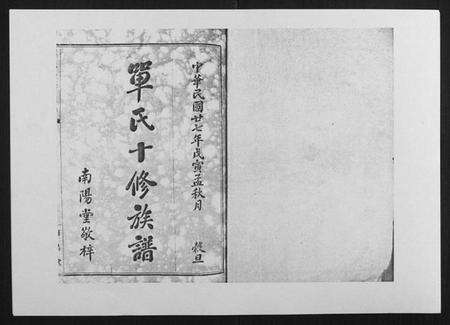 中華民國廿七年戊寅孟秋月 穀旦
單氏十修族譜
南陽堂敬梓